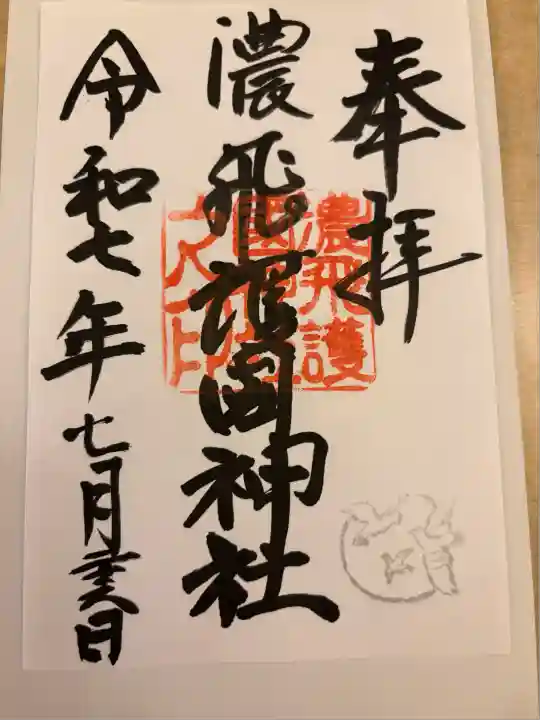 奉拝
濃飛護国神社
濃飛護
国神社
之印
令和七年七月二十六日